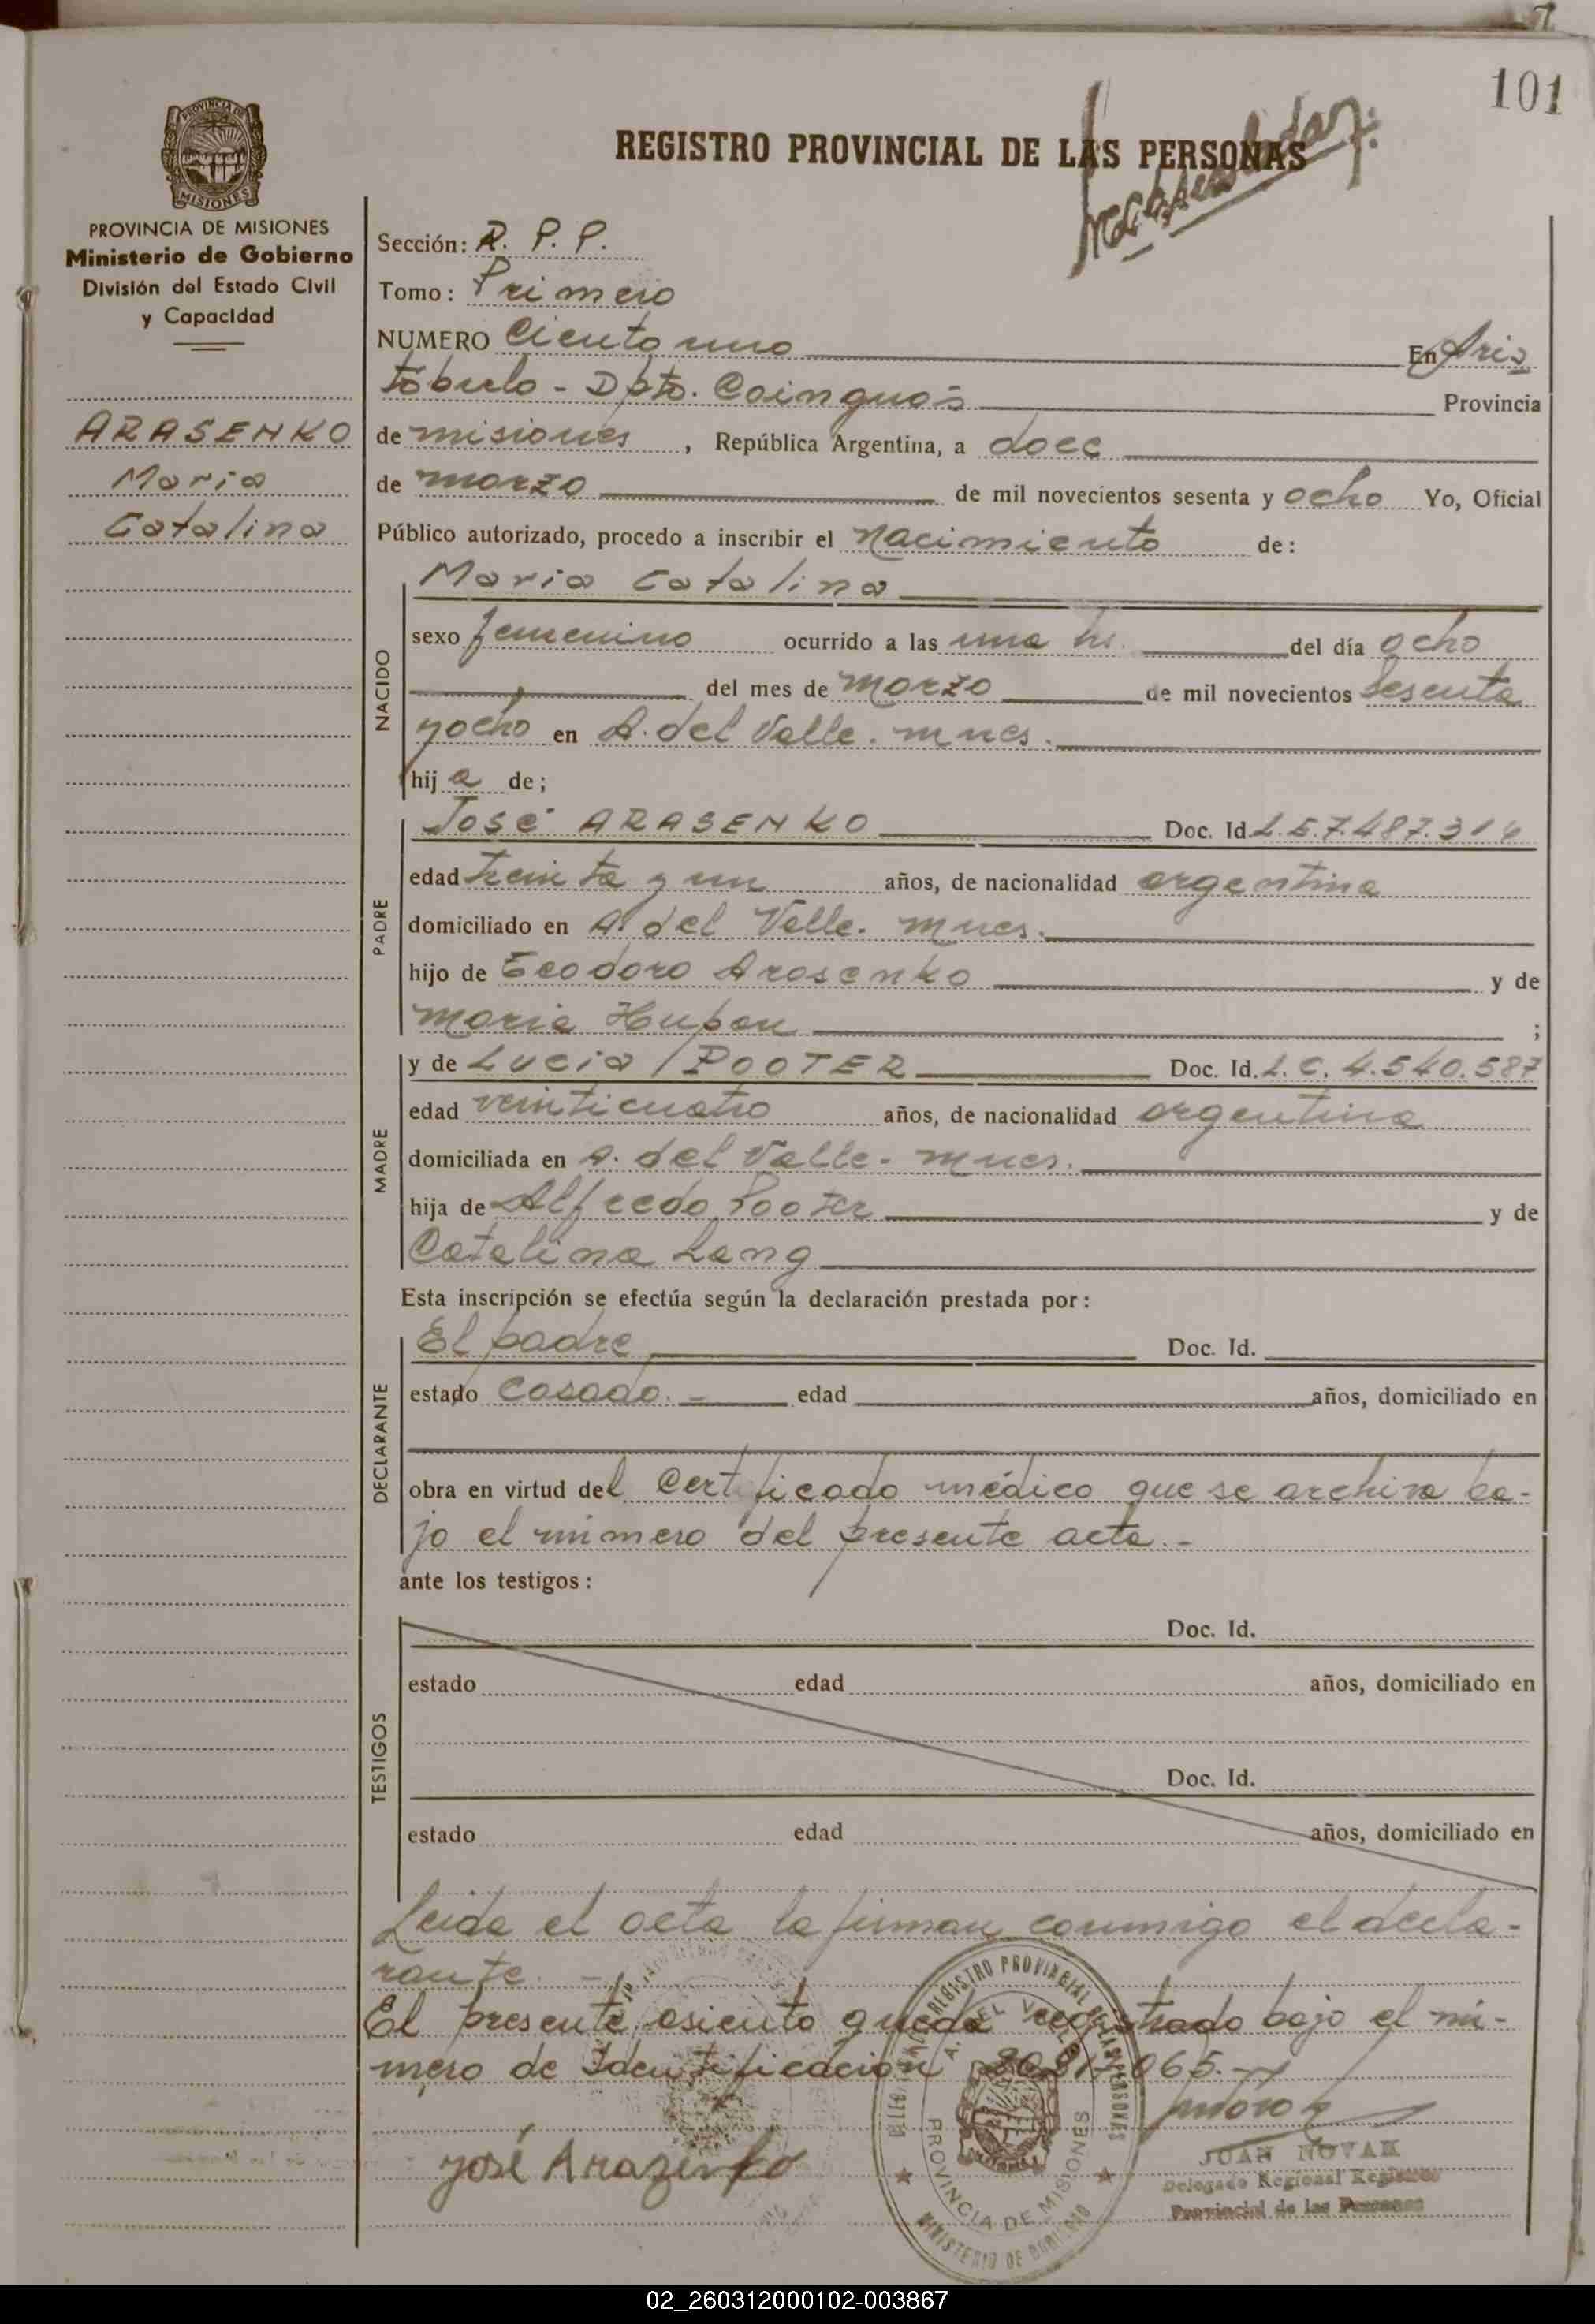 101
REGISTRO PROVINCIAL DE LAS PERSONAS
PROVINCIA DE MISIONES
MISIONES
PROVINCIA DE MISIONES
Ministerio de Gobierno
División del Estado Civil
y Capacidad
ARASENKO
Maria
Catalina
Sección: R. P. P.
Tomo: Primero
NUMERO Ciento uno En Aris
tóbulo - Dpto. Cainguás Provincia
de misiones, República Argentina, a doce
de marzo de mil novecientos sesenta y ocho Yo, Oficial
Público autorizado, procedo a inscribir el nacimiento de:
NACIDO
Maria Catalina
sexo femenino ocurrido a las una hs. del día ocho
del mes de marzo de mil novecientos sesenta
y ocho en A. del Valle. mnes.
hija de;
PADRE
José ARASENKO Doc. Id. L.E. 7.487.314
edad treinta y un años, de nacionalidad argentina
domiciliado en A. del Valle. mnes.
hijo de Teodoro Arasenko y de
Maria ;
MADRE
y de Lucia POOTER Doc. Id. L.C. 4.540.587
edad veinticuatro años, de nacionalidad argentina
domiciliada en A. del Valle. mnes.
hija de Alfredo Pooter y de
Catalina Lang
Esta inscripción se efectúa según la declaración prestada por:
DECLARANTE
El padre Doc. Id.
estado Casado. - edad años, domiciliado en
obra en virtud del Certificado médico que se archiva ba-
jo el número del presente acta. -
ante los testigos:
TESTIGOS
Doc. Id.
estado edad años, domiciliado en
Doc. Id.
estado edad años, domiciliado en
Leida el acta la firman conmigo el decla-
rante. -
El presente asiento queda registrado bajo el nú-
mero de Identificación 065. -
José Arazenko
REGISTRO PROVINCIAL DE LAS PERSONAS
A. DEL VALLE
PROVINCIA DE MISIONES
MINISTERIO DE GOBIERNO
JUAN NOVAK
Delegado Regional Registro
Provincial de las Personas
02_260312000102-003867